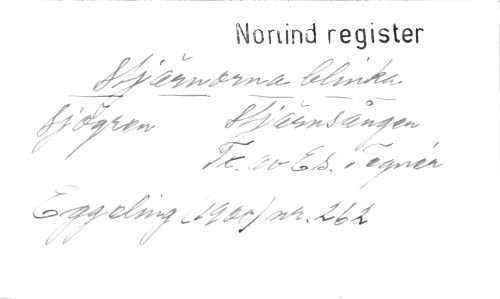 Norlind register
Stjärnorna blinka
Sjögren Stjärnsången
Tr. av Es. Tegnér
Eggeling (1900) nr. 262